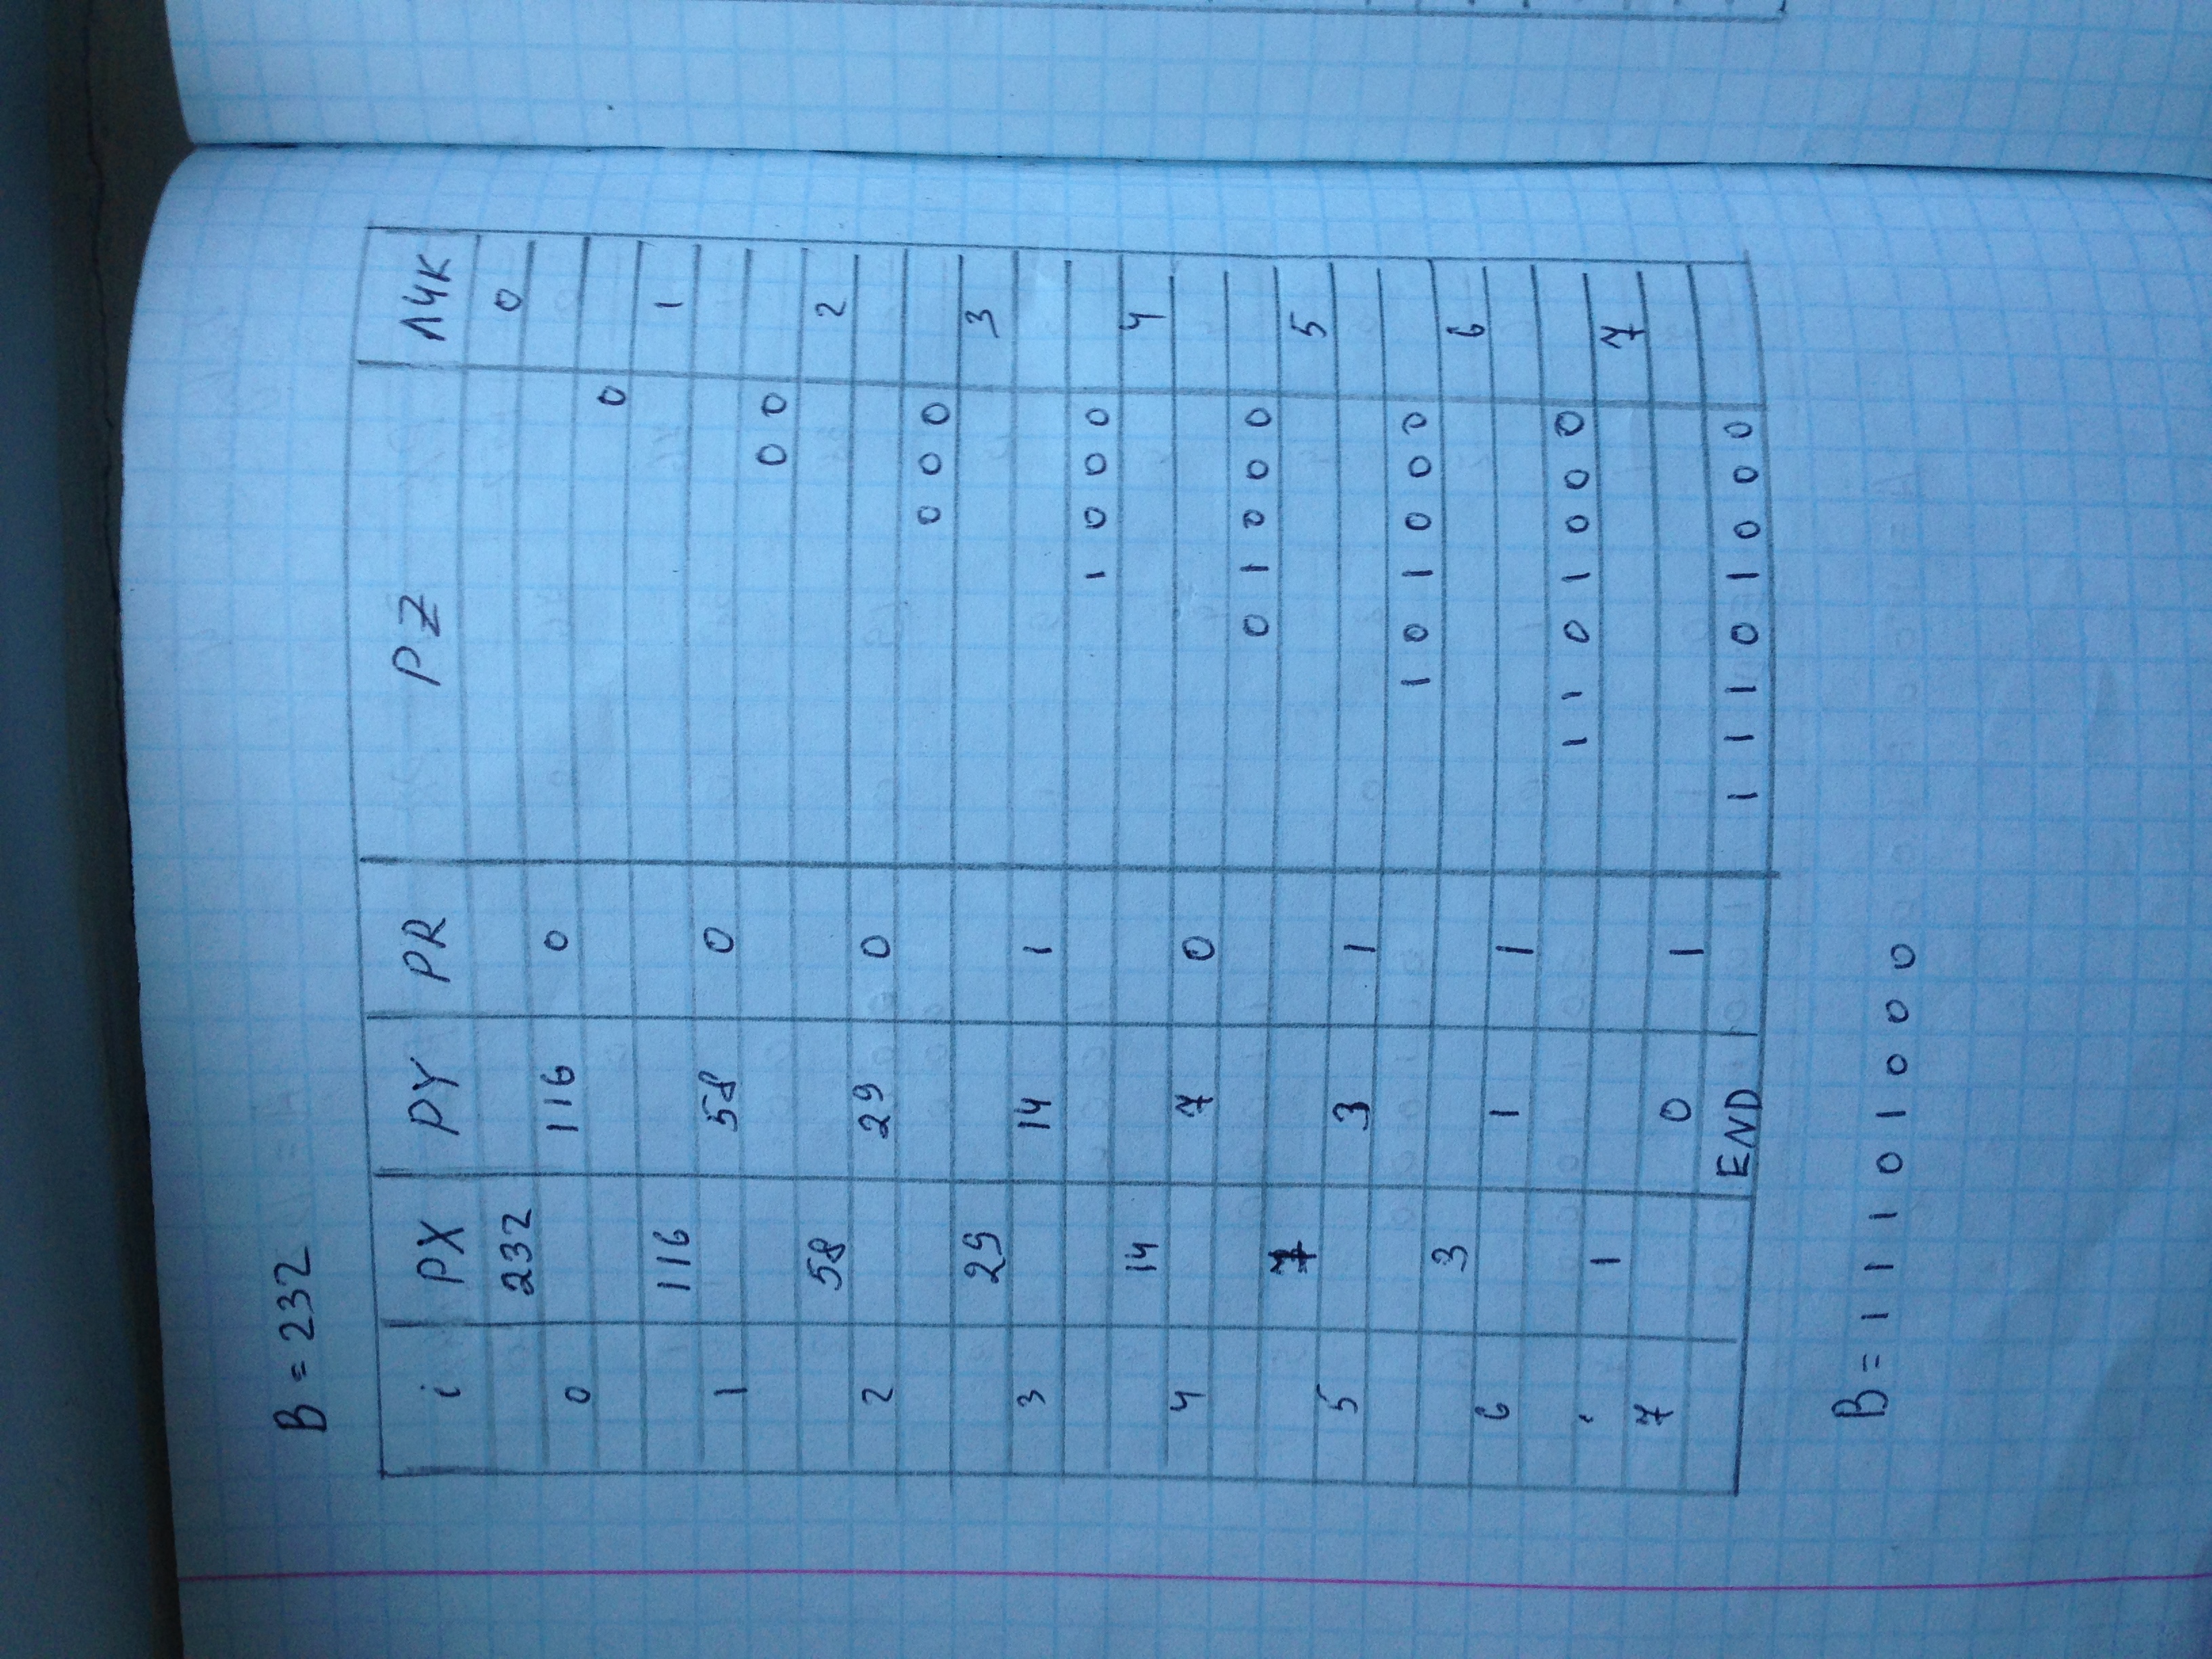 B = 232
i PX PY PR PZ ЛЧК
232 0
0 116 0
0
116 1
1 58 0
0 0
58 2
2 29 0
0 0 0
29 3
3 14 1
1 0 0 0
14 4
4 7 0
0 1 0 0 0
7 5
5 3 1
1 0 1 0 0 0
3 6
6 1 1
1 1 0 1 0 0 0
1 7
7 0 1
END 1 1 1 0 1 0 0 0
B = 1 1 1 0 1 0 0 0